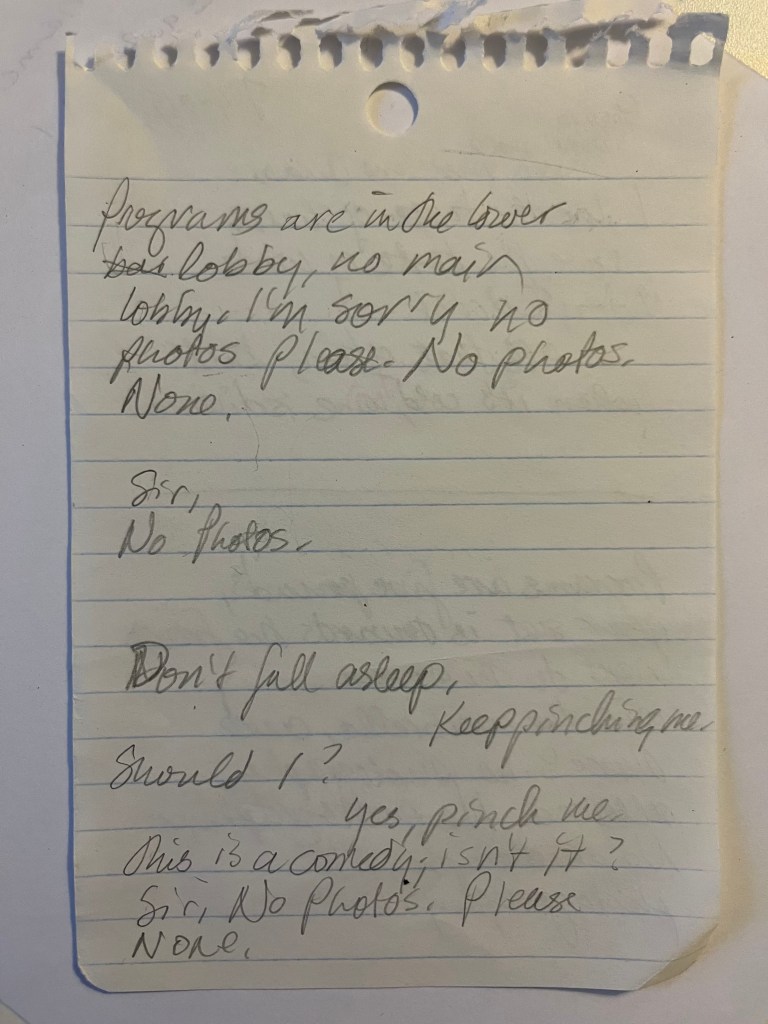 Programs are in the lower
lobby, no main
lobby. I'm sorry no
photos Please. No photos.
None.
Sir,
No Photos.
Don't fall asleep,
Keep pinching me.
Should I?
Yes, pinch me.
This is a comedy, isn't it?
Sir, No Photos. Please
None.